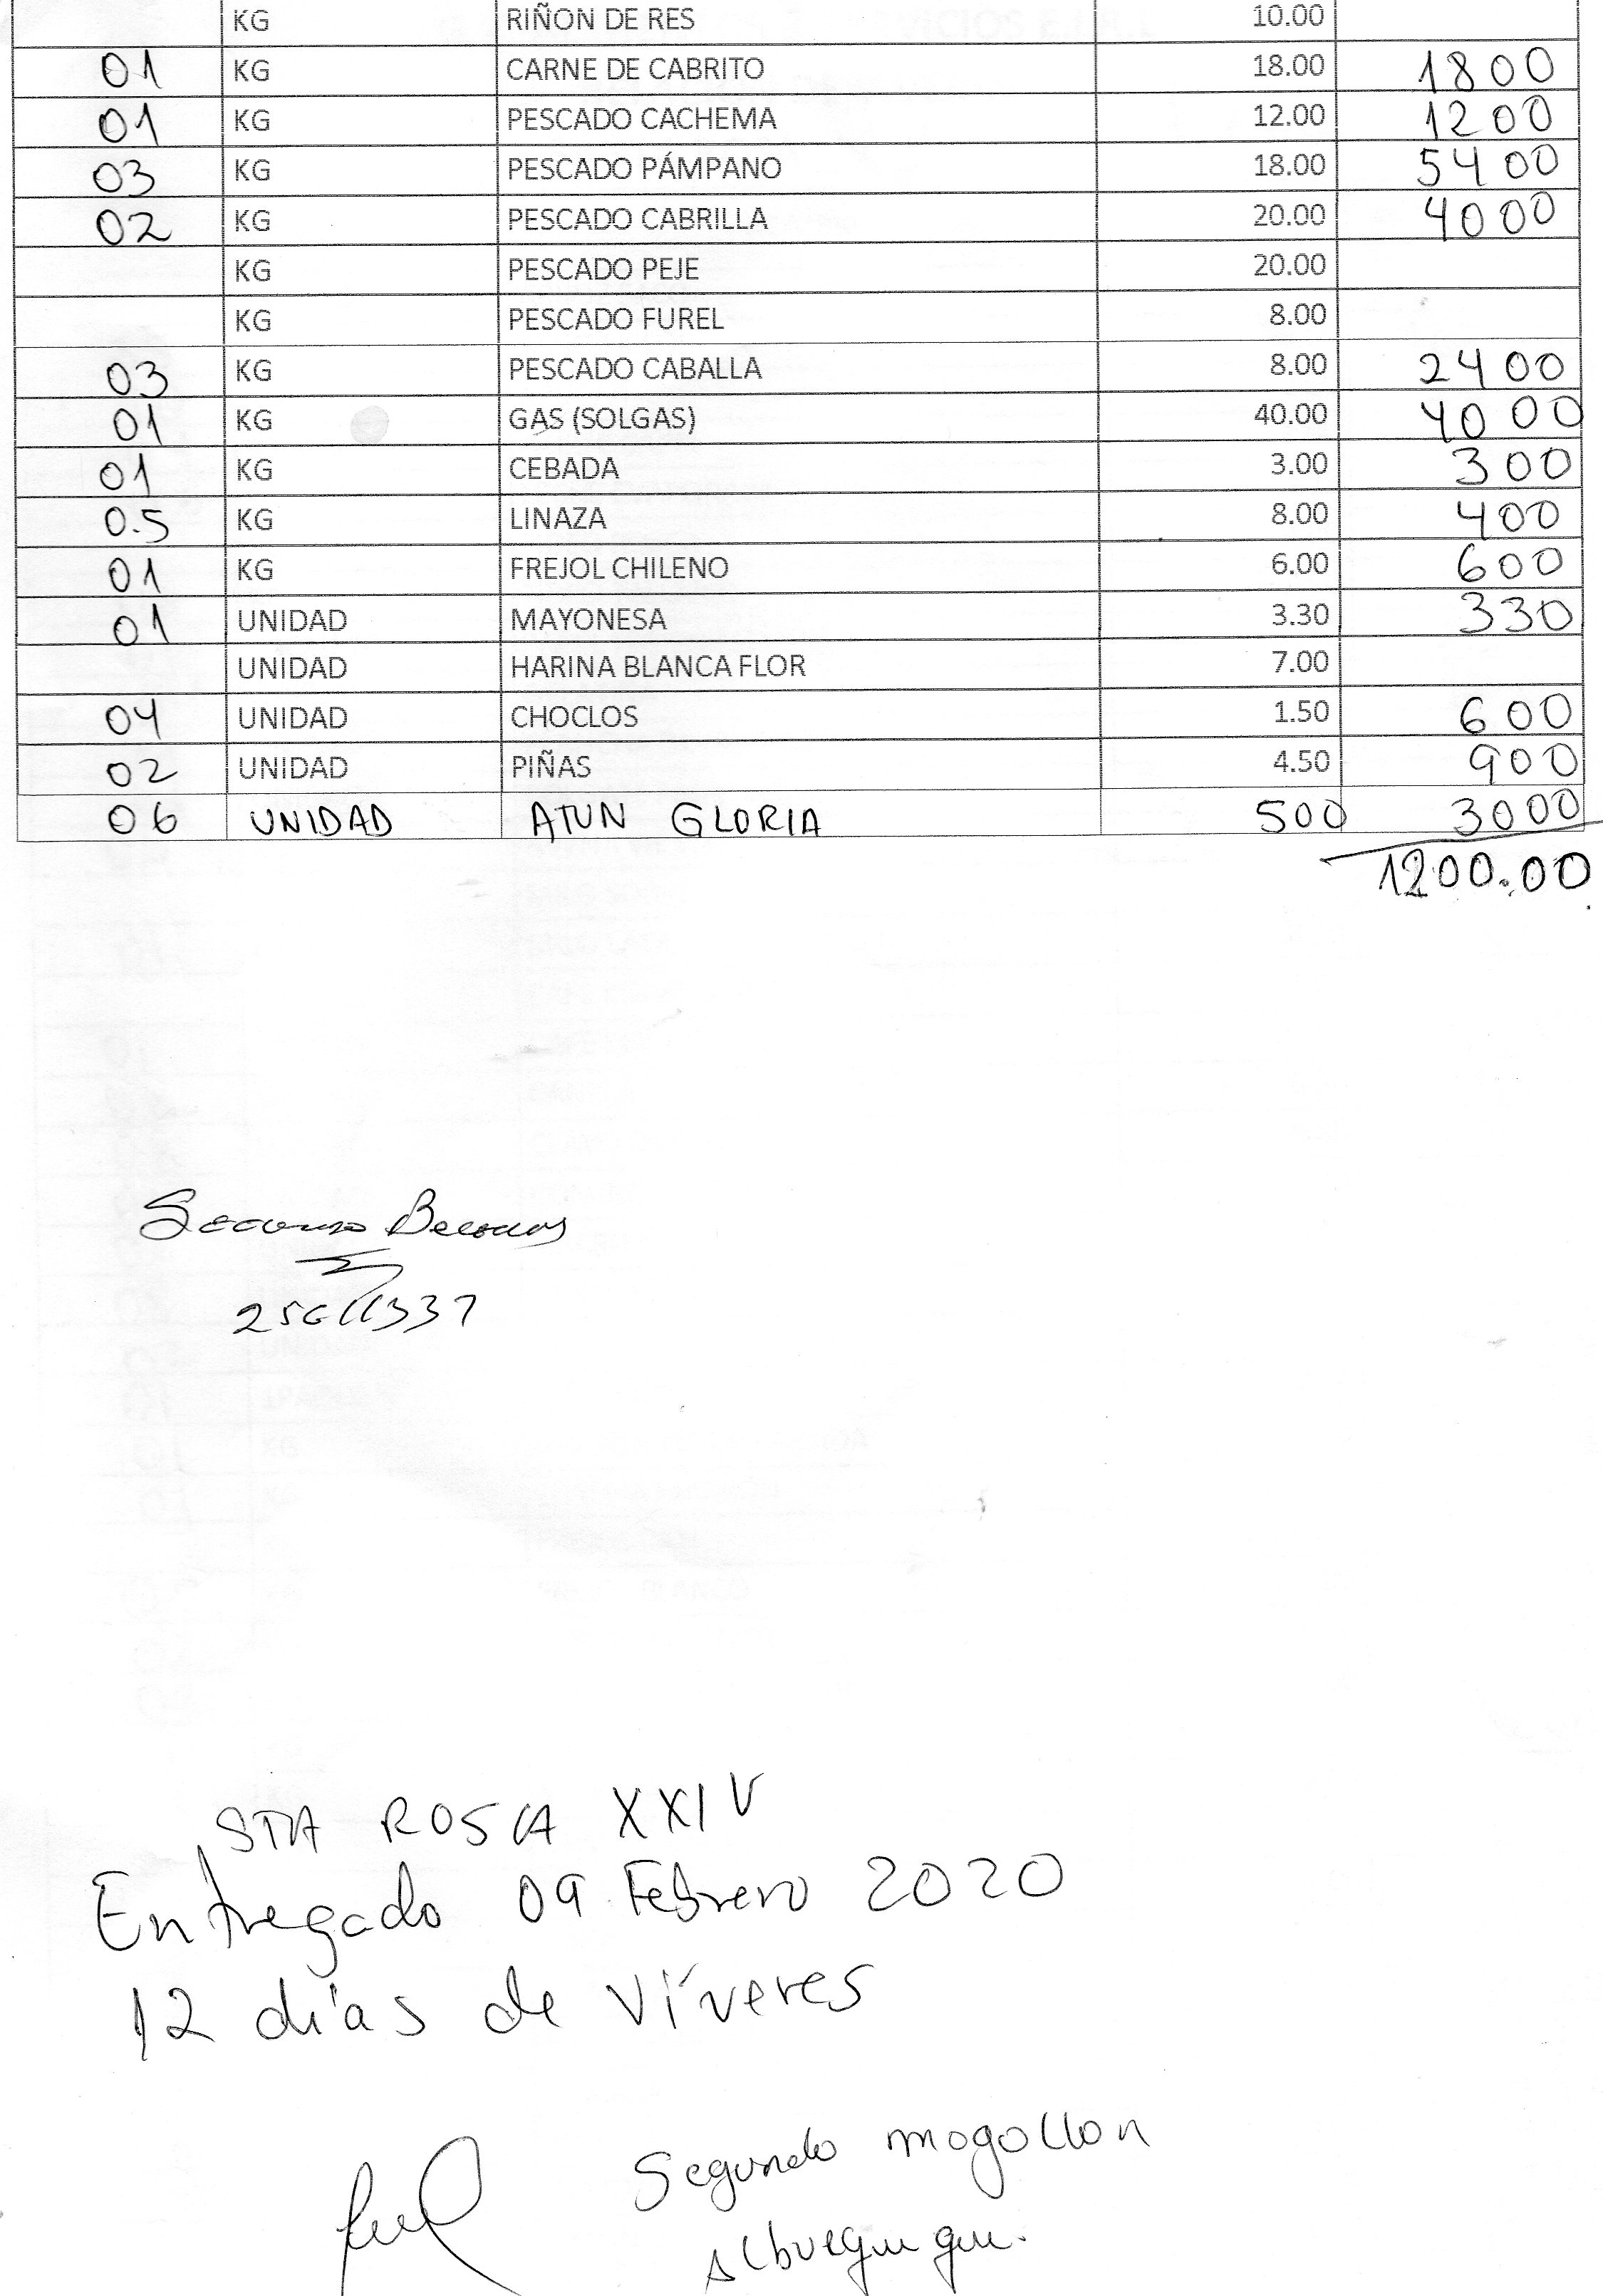 KG RIÑON DE RES 10.00
01 KG CARNE DE CABRITO 18.00 1800
01 KG PESCADO CACHEMA 12.00 1200
03 KG PESCADO PÁMPANO 18.00 5400
02 KG PESCADO CABRILLA 20.00 4000
KG PESCADO PEJE 20.00
KG PESCADO FUREL 8.00
03 KG PESCADO CABALLA 8.00 2400
01 KG GAS (SOLGAS) 40.00 4000
01 KG CEBADA 3.00 300
0.5 KG LINAZA 8.00 400
01 KG FREJOL CHILENO 6.00 600
01 UNIDAD MAYONESA 3.30 330
UNIDAD HARINA BLANCA FLOR 7.00
04 UNIDAD CHOCLOS 1.50 600
02 UNIDAD PIÑAS 4.50 900
06 UNIDAD ATUN GLORIA 500 3000
1200.00
STA ROSA XXIV
Entregado 09 Febrero 2020
12 días de víveres
Segundo mogollon